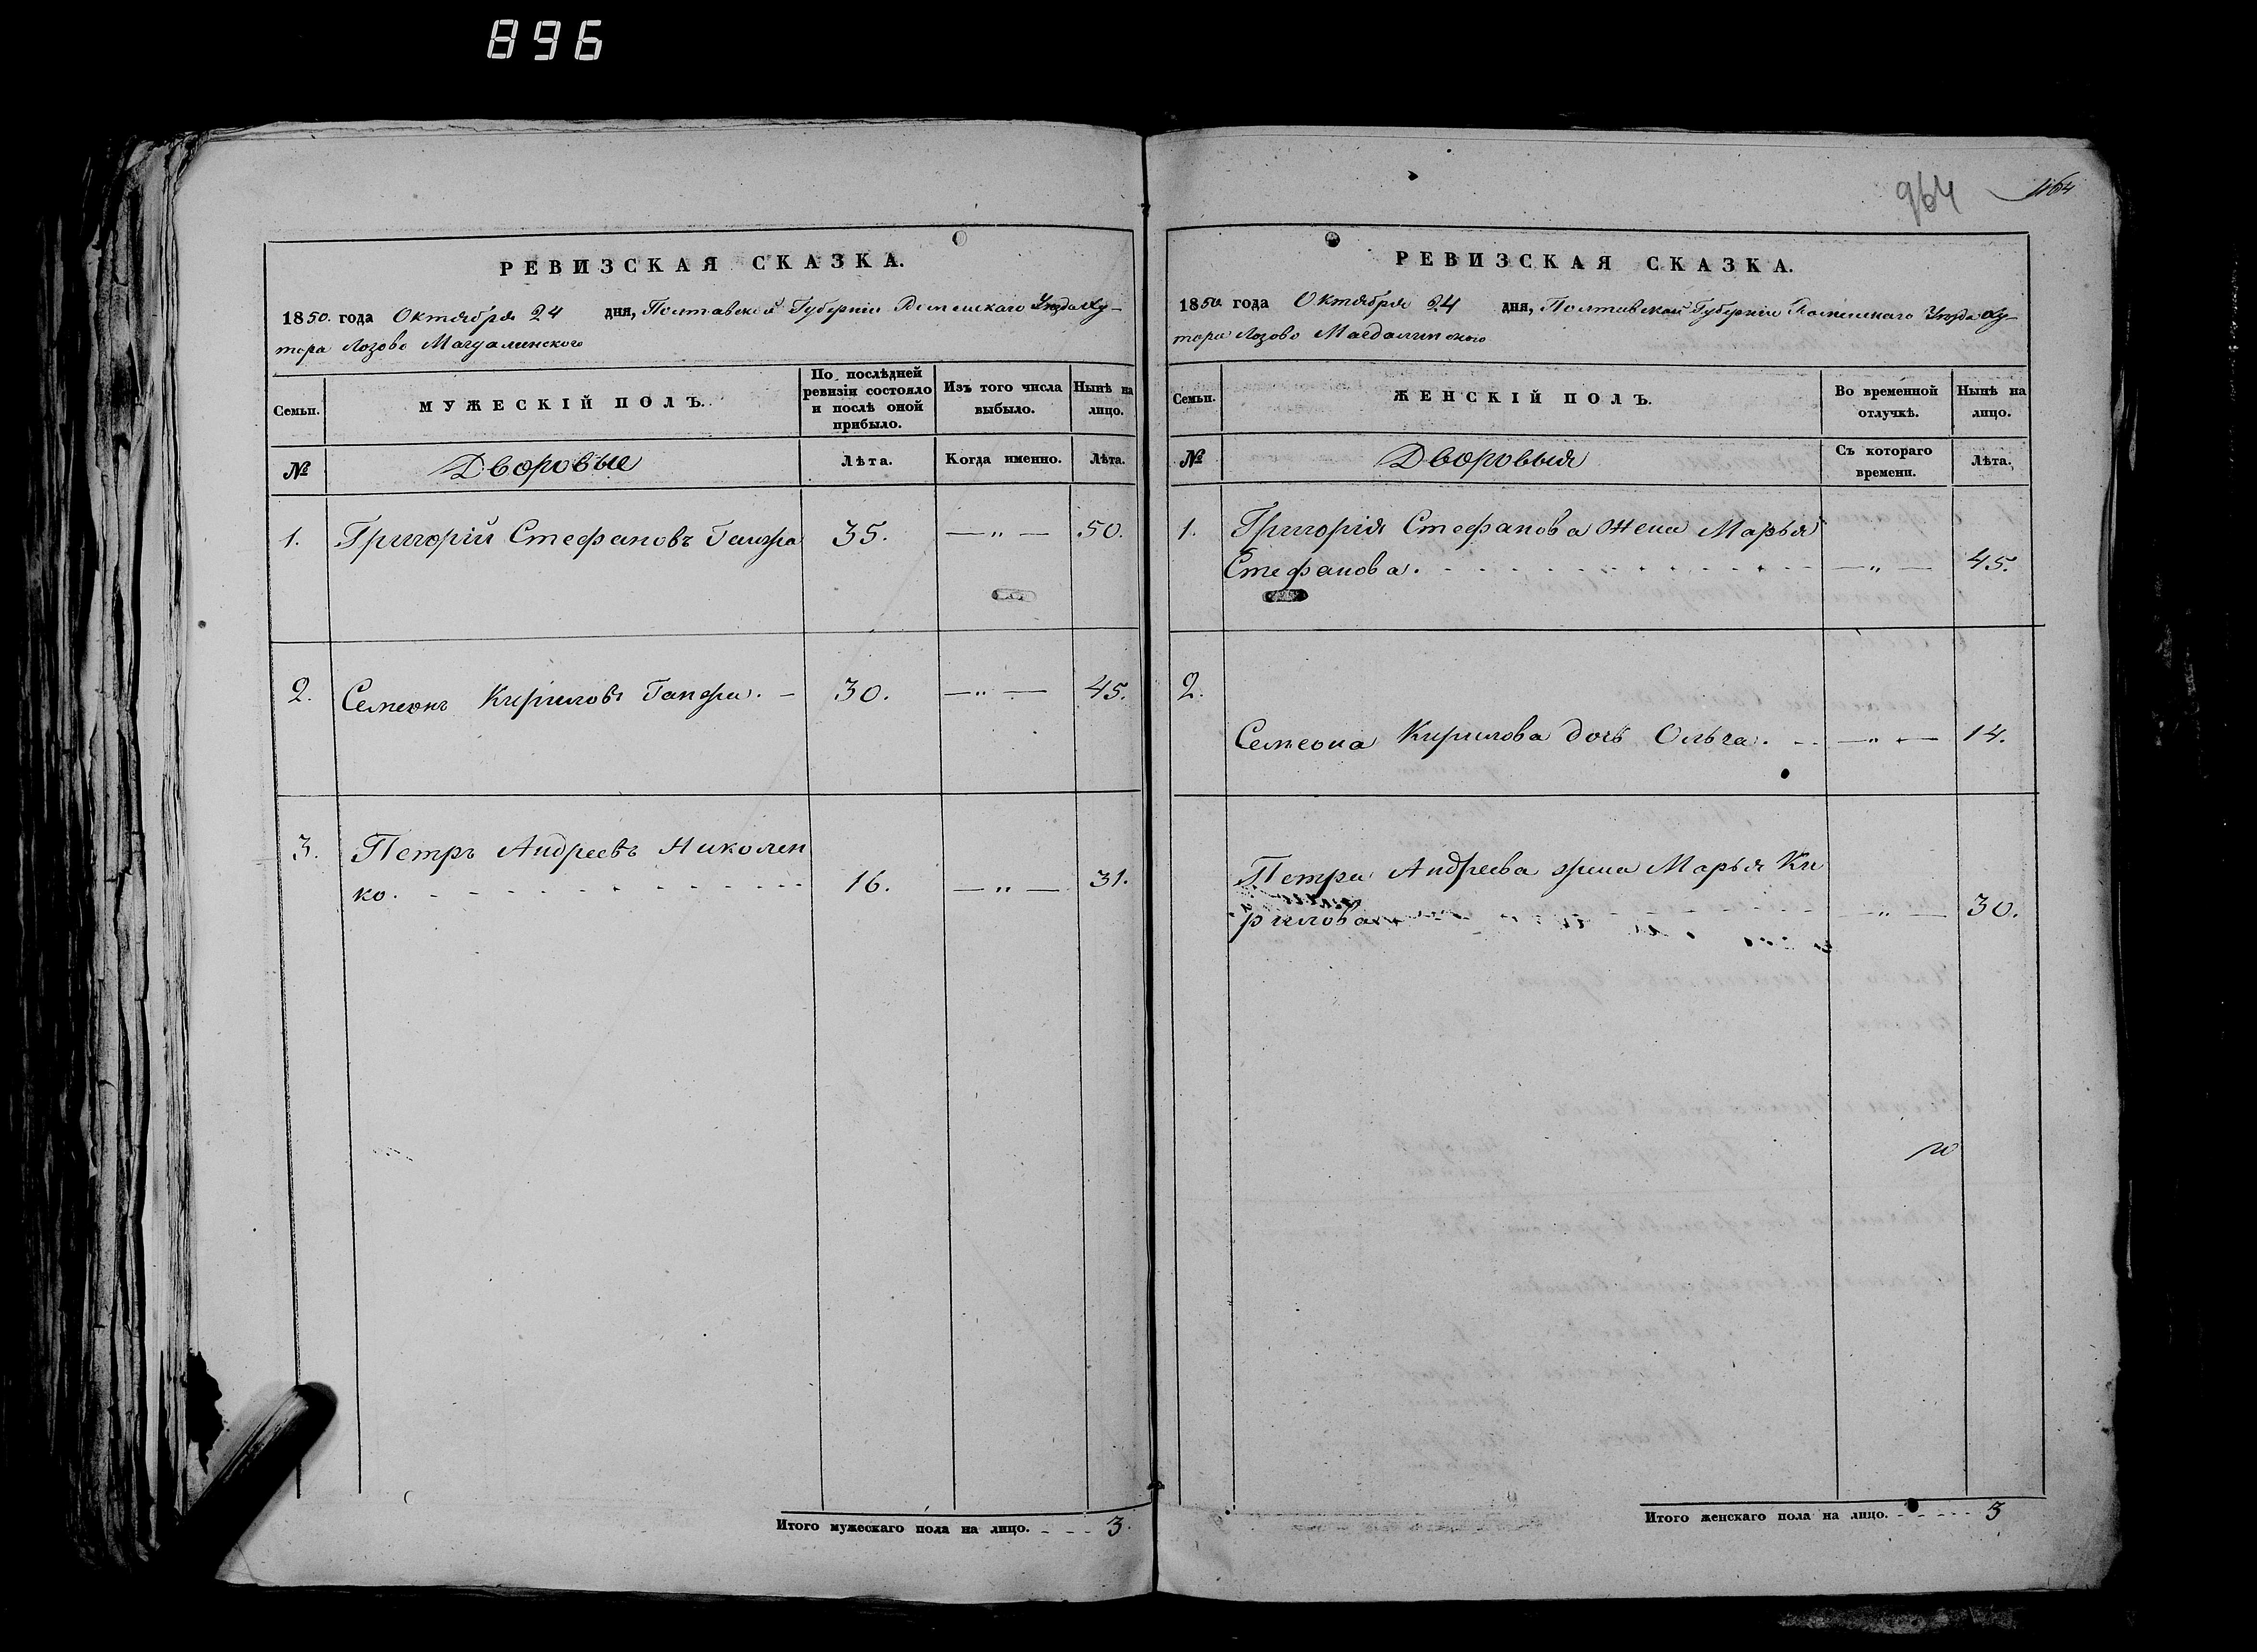 896
964
464
РЕВИЗСКАЯ СКАЗКА.
1850. года Октября 24 дня, Полтавской Губерніи Роменскаго Уѣзда Ху-
тора Лозово Магдалинского
Семьи.
МУЖЕСКІЙ ПОЛЪ.
По послѣдней ревизіи состояло и послѣ оной прибыло.
Изъ того числа выбыло.
Нынѣ на лицо.
№
Дворовые
Лѣта.
Когда именно.
Лѣта.
1. Григорій Стефановъ 35. — " — 50.
2. Семенъ Кириловъ 30. — " — 45.
3. Петръ Андреевъ Николен
ко. 16. — " — 31.
Итого мужескаго пола на лицо. 3.
РЕВИЗСКАЯ СКАЗКА.
1850. года Октября 24 дня, Полтавской Губерніи Роменскаго Уѣзда Ху-
тора Лозово Магдалинского
Семьи.
ЖЕНСКІЙ ПОЛЪ.
Во временной отлучкѣ.
Нынѣ на лицо.
№
Дворовыя
Съ котораго времени.
Лѣта.
1. Григорія Стефанова жена Марья
Стефанова. — " — 45.
2.
Семеона Кирилова дочь Ольга. — " — 14.
Петра Андреева жена Марья Ки
рилова — " — 30.
Итого женскаго пола на лицо. 3